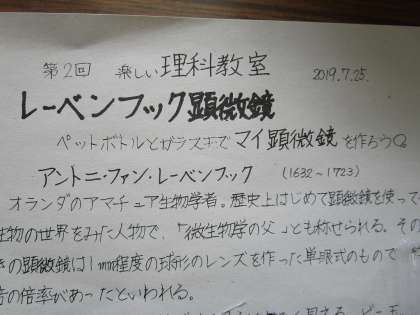 第2回 楽しい理科教室 2019.7.25.
レーベンフック顕微鏡
ペットボトルとガラス玉でマイ顕微鏡を作ろう
アントニ・ファン・レーベンフック (1632〜1723)
オランダのアマチュア生物学者。歴史上はじめて顕微鏡を使って
生物の世界をみた人物で、「微生物学の父」とも称せられる。その
きの顕微鏡は1mm程度の球形のレンズを作った単眼式のもので
倍の倍率があったといわれる。